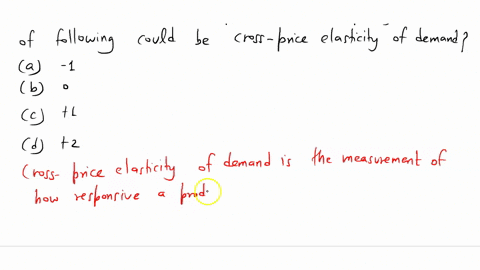 of following could be "cross-price elasticity" of demand?
(a) -1
(b) 0
(c) +1
(d) +2
Cross-price elasticity of demand is the measurement of
how responsive a prod